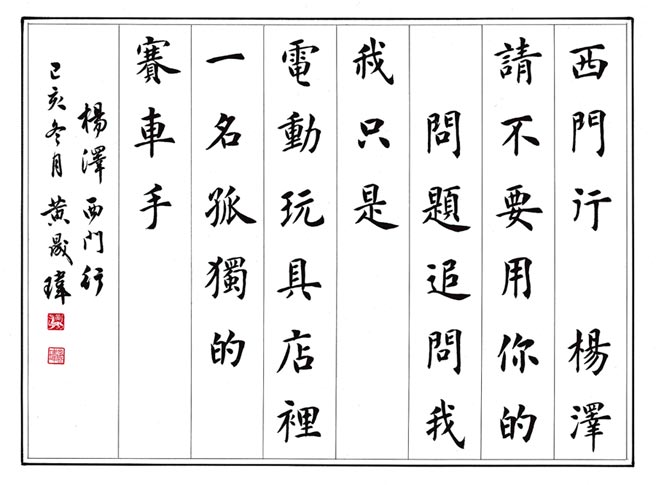 西門行 楊澤
請不要用你的
問題追問我
我只是
電動玩具店裡
一名孤獨的
賽車手
楊澤 西門行
己亥冬月 黃晟瑋